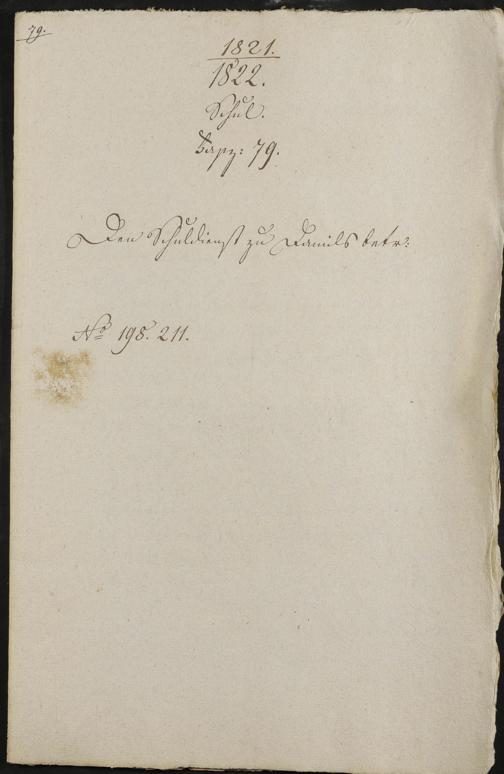 79.
1821.
1822.
Schul.
Fasz: 79.
Den Schuldienst zu Damils betr:
No 198. 211.